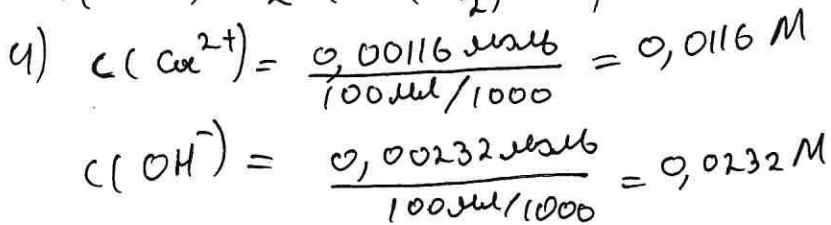 4) c(Ca²⁺) = 0,00116 моль / 100 мл/1000 = 0,0116 M
c(OH⁻) = 0,00232 моль / 100 мл/1000 = 0,0232 M